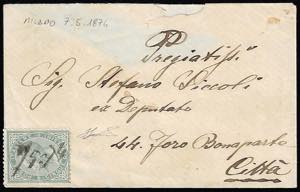 MILANO 7.5.1874
Pregiatiss.
Sig. Stefano Piccoli
ex Deputato
44. Foro Bonaparte
Città
7/5/74